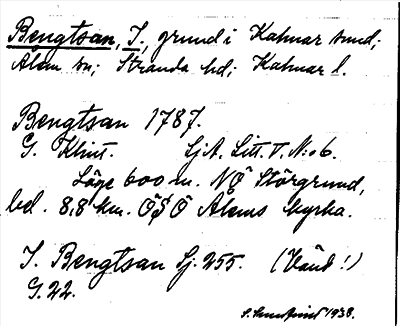 Bengtsan, I., grund i Kalmar sund;
Ålem sn; Stranda hd; Kalmar l.
Bengtsan 1787.
G. Klint. SjA. Litt. T. N:o 6.
Läge 600 m. NO Störgrund,
bel. 8,8 km. OSO Ålems kyrka.
I. Bengtsan Sj. 255. (Vänd!)
G. 22.
1938.